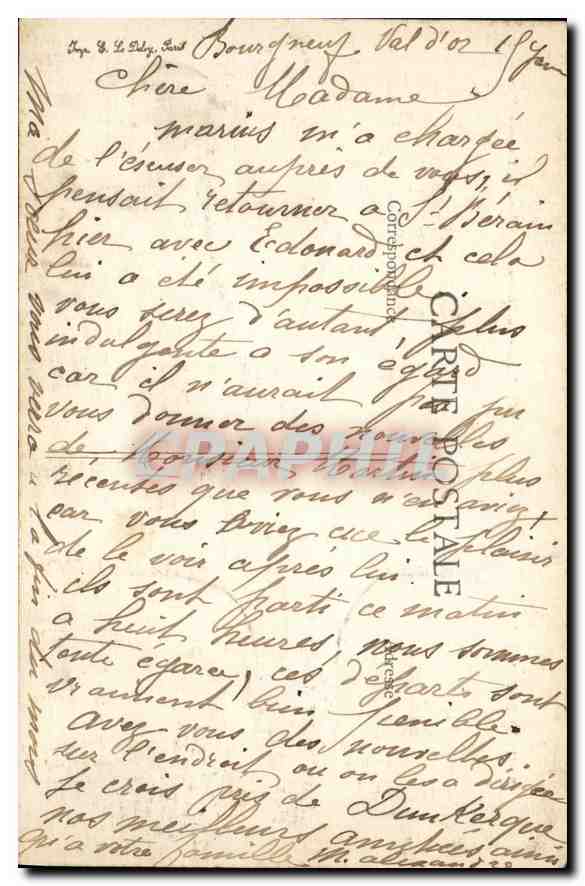 Imp. E. Le Deley, Paris
Bourgneuf Val d'or 15
Chère Madame
Marius m'a chargée
de l'éscuser auprès de vous, il
pensait retourner a St Bérain
hier avec Edouard et cela
lui a été impossible.
vous serez d'autant plus
indulgente a son égard
car il n'aurait pas pu
vous donner des nouvelles
de Monsieur plus
récentes que vous n'en aviez!
car vous aviez eue le plaisir
de le voir après lui.
ils sont parti ce matin
a huit heures, nous sommes
toute égaré, ces départs sont
vraiment bien penible.
avez vous des nouvelles
sur l'endroit ou on les a dirigée
je crois près de Dunkerque
nos meilleurs amitiées ainsi
qu'a votre famille M. alexandre
Ma soeur vous verra a la fin du mois
CARTE POSTALE
Correspondance
Adresse
CPAPHIL